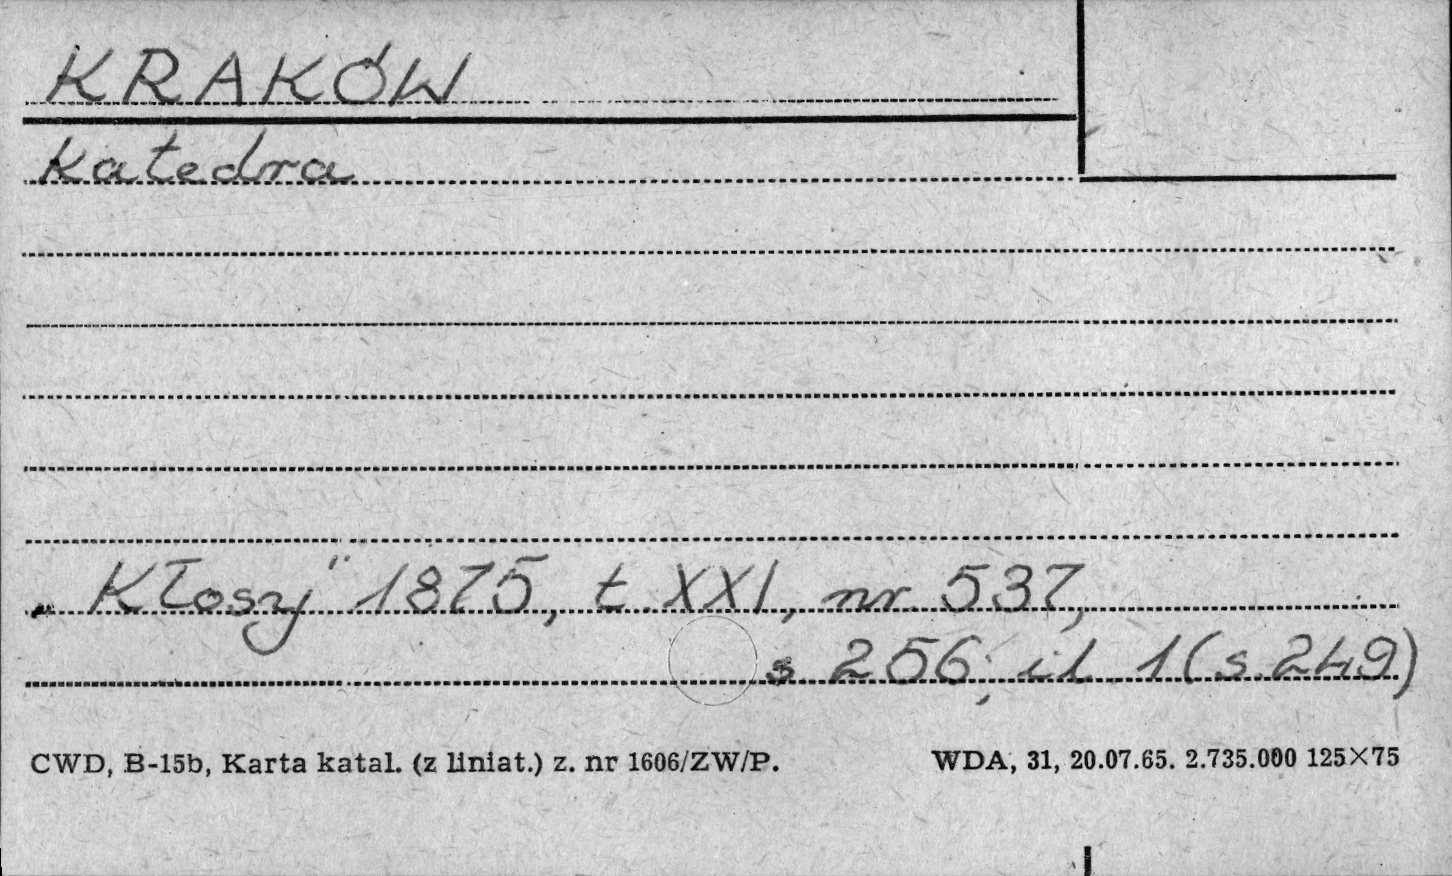 KRAKÓW
Katedra
„Kłosy" 1875, t. XXI, nr. 537,
s. 256; il. 1 (s. 249)
CWD, B-15b, Karta katal. (z liniat.) z. nr 1606/ZW/P. WDA, 31, 20.07.65. 2.735.000 125×75